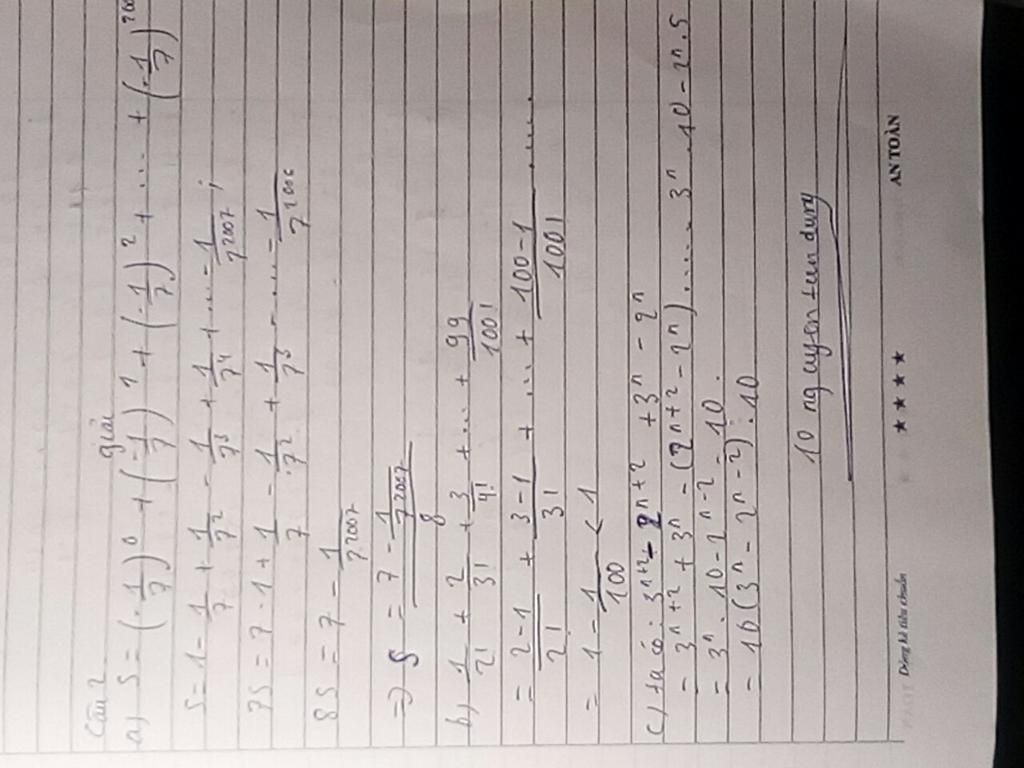 Câu 2
giải
a) S = (-1/7)^0 + (-1/7)^1 + (-1/7)^2 + .... + (-1/7)^200
S = 1 - 1/7 + 1/7^2 - 1/7^3 + 1/7^4 + .... - 1/7^2007;
7S = 7 - 1 + 1/7 - 1/7^2 + 1/7^3 - .... - 1/7^2006
8S = 7 - 1/7^2007
=> S = (7 - 1/7^2007)/8
b) 1/2! + 2/3! + 3/4! + .... + 99/100!
= (2-1)/2! + (3-1)/3! + ... + (100-1)/100! .....
= 1 - 1/100 < 1
c) ta có: 3^n+2 - 2^n+2 + 3^n - 2^n
= 3^n+2 + 3^n - (2^n+2 - 2^n) ...... 3^n . 10 - 2^n . 5
= 3^n . 10 - 2^n-2 . 10 .
= 10(3^n - 2^n-2) : 10
10 nguyen tuan dung
Dòng kẻ tiêu chuẩn ★★★★ AN TOÀN